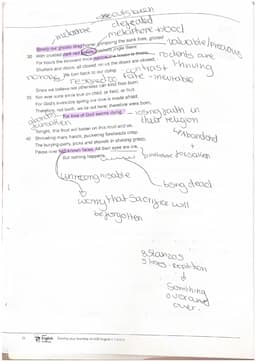 defeated
metaphor - blood
Slowly our ghosts drag home: glimpsing the sunk fires, glozed
valuable/precious
With crusted dark-red jewels; crickets jingle there;
For hours the innocent mice rejoice: the house is theirs;
rodents are
thriving
Shutters and doors, all closed: on us the doors are closed,
We turn back to our dying.
contrast
resigned to fate - inevitable
Since we believe not otherwise can kind fires burn;
Nor ever suns smile true on child, or field, or fruit.
For God's invincible spring our love is made afraid;
Therefore, not loath, we lie out here; therefore were born,
For love of God seems dying.
losing faith in
their religion
Abandoned
Tonight, this frost will fasten on this mud and us,
Shrivelling many hands, puckering foreheads crisp.
The burying-party, picks and shovels in shaking grasp,
Pause over half-known faces. All their eyes are ice,
But nothing happens.
unrecognisable
being dead
worry that sacrifice will
be forgotten
8 stanzas
5 lines - repetition
Something
over and
over.